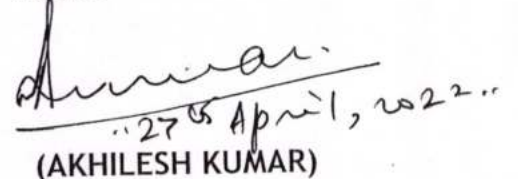 27th April, 2022..
(AKHILESH KUMAR)